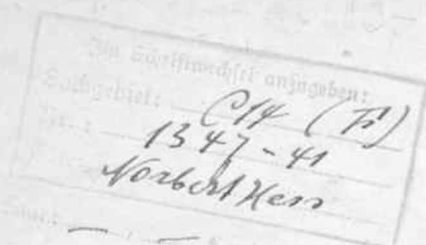 Im Schriftwechsel anzugeben:
Sachgebiet: C14 (F)
Nr.: 1347-41
Norbert Hess